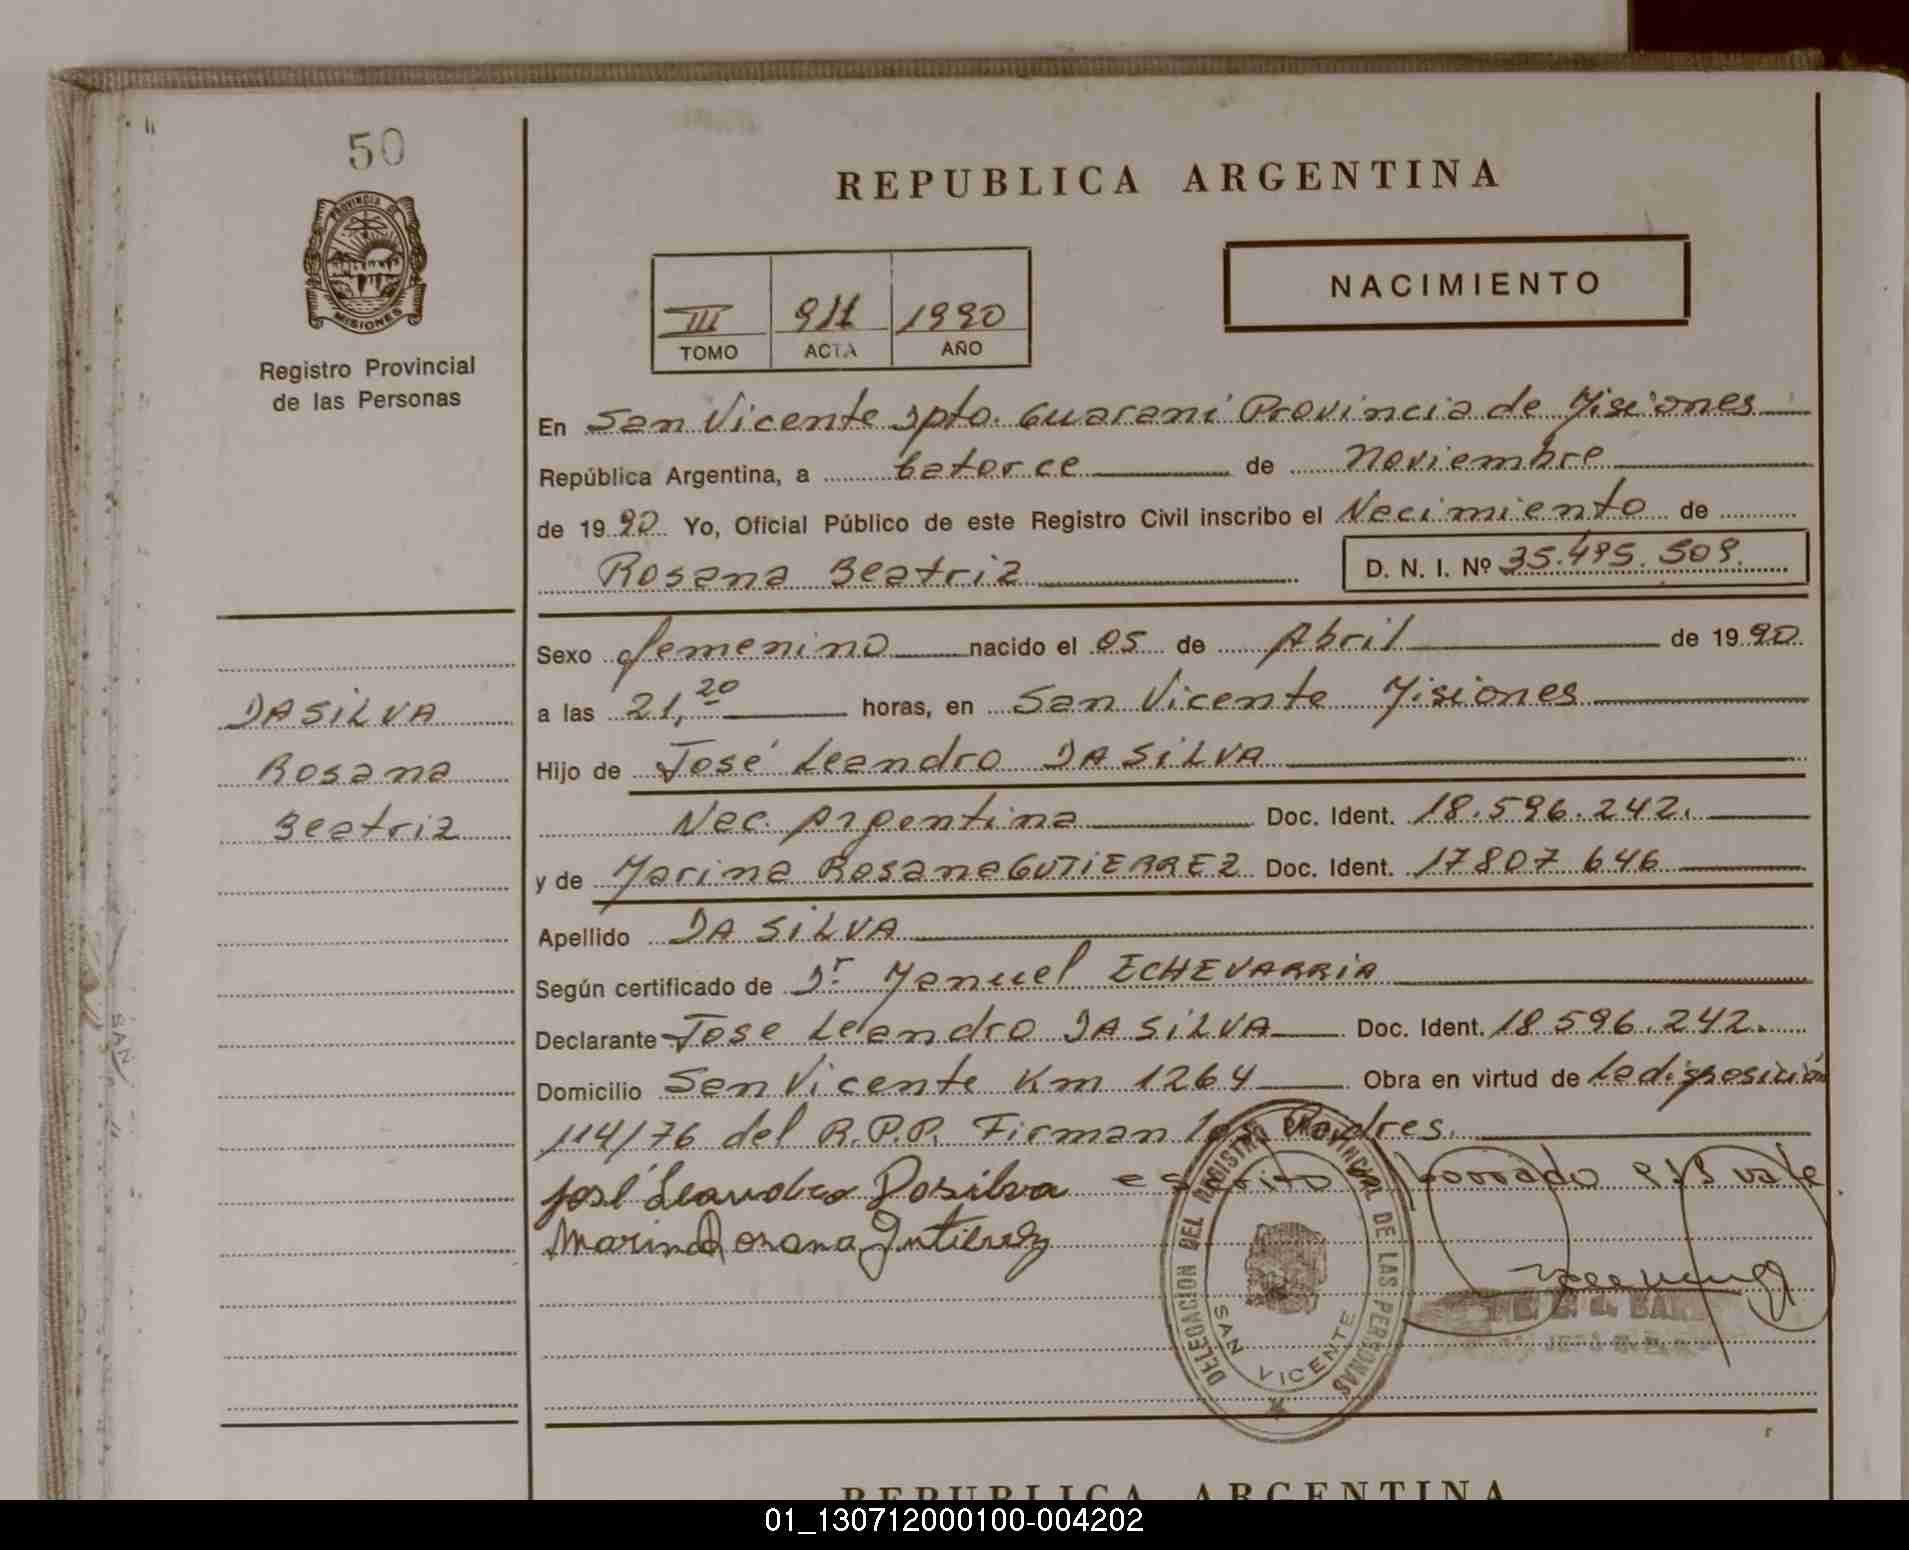 50
PROVINCIA DE
MISIONES
Registro Provincial
de las Personas
REPUBLICA ARGENTINA
III 911 1990
TOMO ACTA AÑO
NACIMIENTO
En San Vicente Dpto. Guaraní Provincia de Misiones
República Argentina, a Catorce de Noviembre
de 1990 Yo, Oficial Público de este Registro Civil inscribo el Nacimiento de
Rosana Beatriz D. N. I. Nº 35.495.509.
Sexo femenino nacido el 05 de Abril de 1990.
a las 21,20 horas, en San Vicente Misiones
Hijo de José Leandro DA SILVA
Nac. Argentina Doc. Ident. 18.596.242.
y de Marina Rosana GUTIERREZ Doc. Ident. 17807646
Apellido DA SILVA
Según certificado de Dr Manuel ECHEVARRIA
Declarante Jose Leandro DA SILVA Doc. Ident. 18596.242.
Domicilio San Vicente Km 1264 Obra en virtud de la disposición
114/76 del R.P.P. Firman los Padres.
José Leandro Dasilva escrito borrado 911 vale.
Marina Rosana Gutierrez
DELEGACION DEL REGISTRO PROVINCIAL DE LAS PERSONAS
SAN VICENTE
DA SILVA
Rosana
Beatriz
SAN
REPUBLICA ARGENTINA
01_130712000100-004202